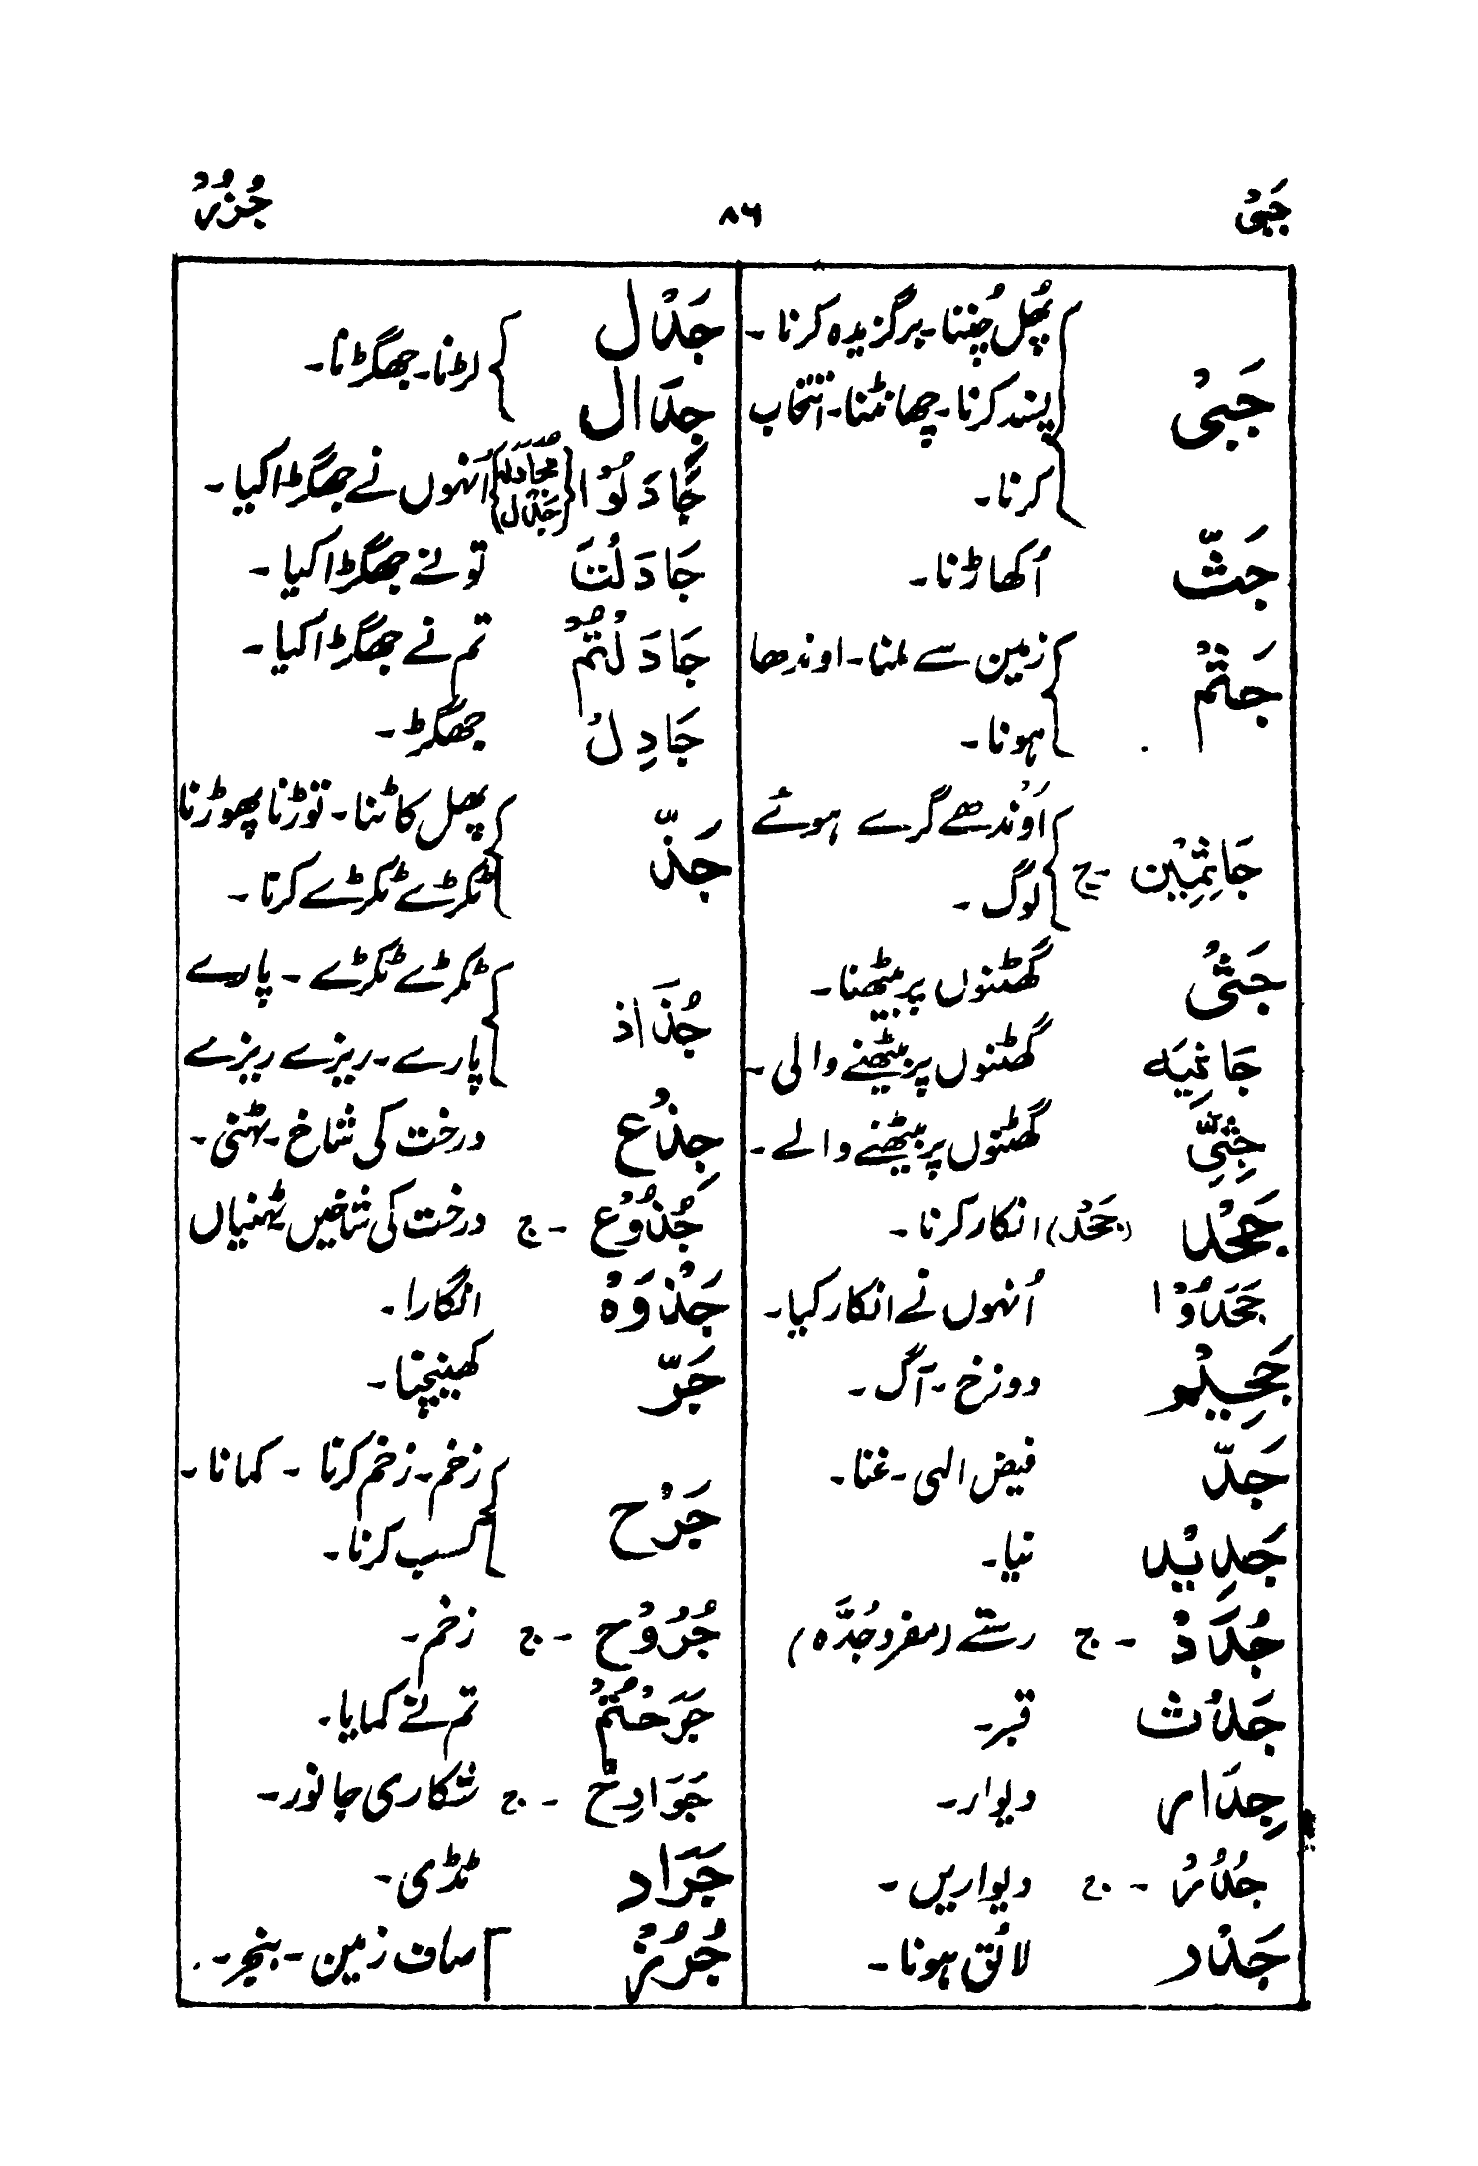 جَبْیٌ
۸۶
جُزُرٌ
جَبْیٌ پھل چُننا۔ برگزیدہ کرنا۔
پسند کرنا۔ چھانٹنا۔ انتخاب
کرنا۔
جَثّ اُکھاڑنا۔
جَثْمٌ زمین سے ملنا۔ اوندھا
ہونا۔
جَاثِمِیْن ۔ ج اَوندھے گرے ہوئے
لوگ۔
جَثْیٌ گھٹنوں پر بیٹھنا۔
جَاثِیَه گھٹنوں پر بیٹھنے والی۔
جِثِیّ گھٹنوں پر بیٹھنے والے۔
جَحْد (جَحَدَ) انکار کرنا۔
جَحَدُوْا اُنہوں نے انکار کیا۔
جَحِیْم دوزخ۔ آگ۔
جَدّ فیض الہی۔ غنا۔
جَدِیْد نیا۔
جُدَدٌ ۔ ج رستے (مفرد جُدَّہ)
جَدَث قبر۔
جِدَار دیوار۔
جُدُرٌ ۔ ج دیواریں۔
جَدْر لائق ہونا۔
جَدْل
جِدَال لڑنا۔ جھگڑنا۔
جَادَلُوْا {مُجَادَلَه جِدَال} اُنہوں نے جھگڑا کیا۔
جَادَلْتَ تو نے جھگڑا کیا۔
جَادَلْتُمْ تم نے جھگڑا کیا۔
جَادِلْ جھگڑ۔
جَذّ پھل کاٹنا۔ توڑنا پھوڑنا
ٹکڑے ٹکڑے کرنا۔
جُذَاذ ٹکڑے ٹکڑے ۔ پارے
پارے۔ ریزے ریزے
جِذْع درخت کی شاخ۔ ٹہنی۔
جُذُوْع ۔ ج درخت کی شاخیں ٹہنیاں
جَذْوَہ انگارا۔
جَرّ کھینچنا۔
جَرْح زخم۔ زخم کرنا ۔ کمانا۔
کسب کرنا۔
جُرُوْح ۔ ج زخم۔
جَرَحْتُمْ تم نے کمایا۔
جَوَارِحْ ۔ ج شکاری جانور۔
جَرَاد ٹڈی۔
جُرُزٌ صاف زمین۔ بنجر۔